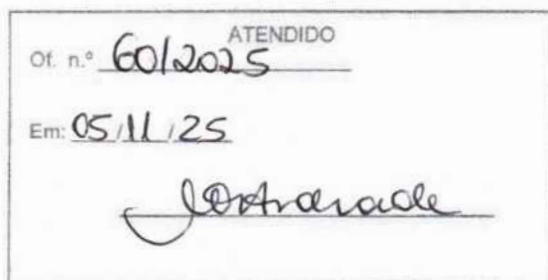 ATENDIDO
Of. n.º 60/2025
Em: 05/11/25